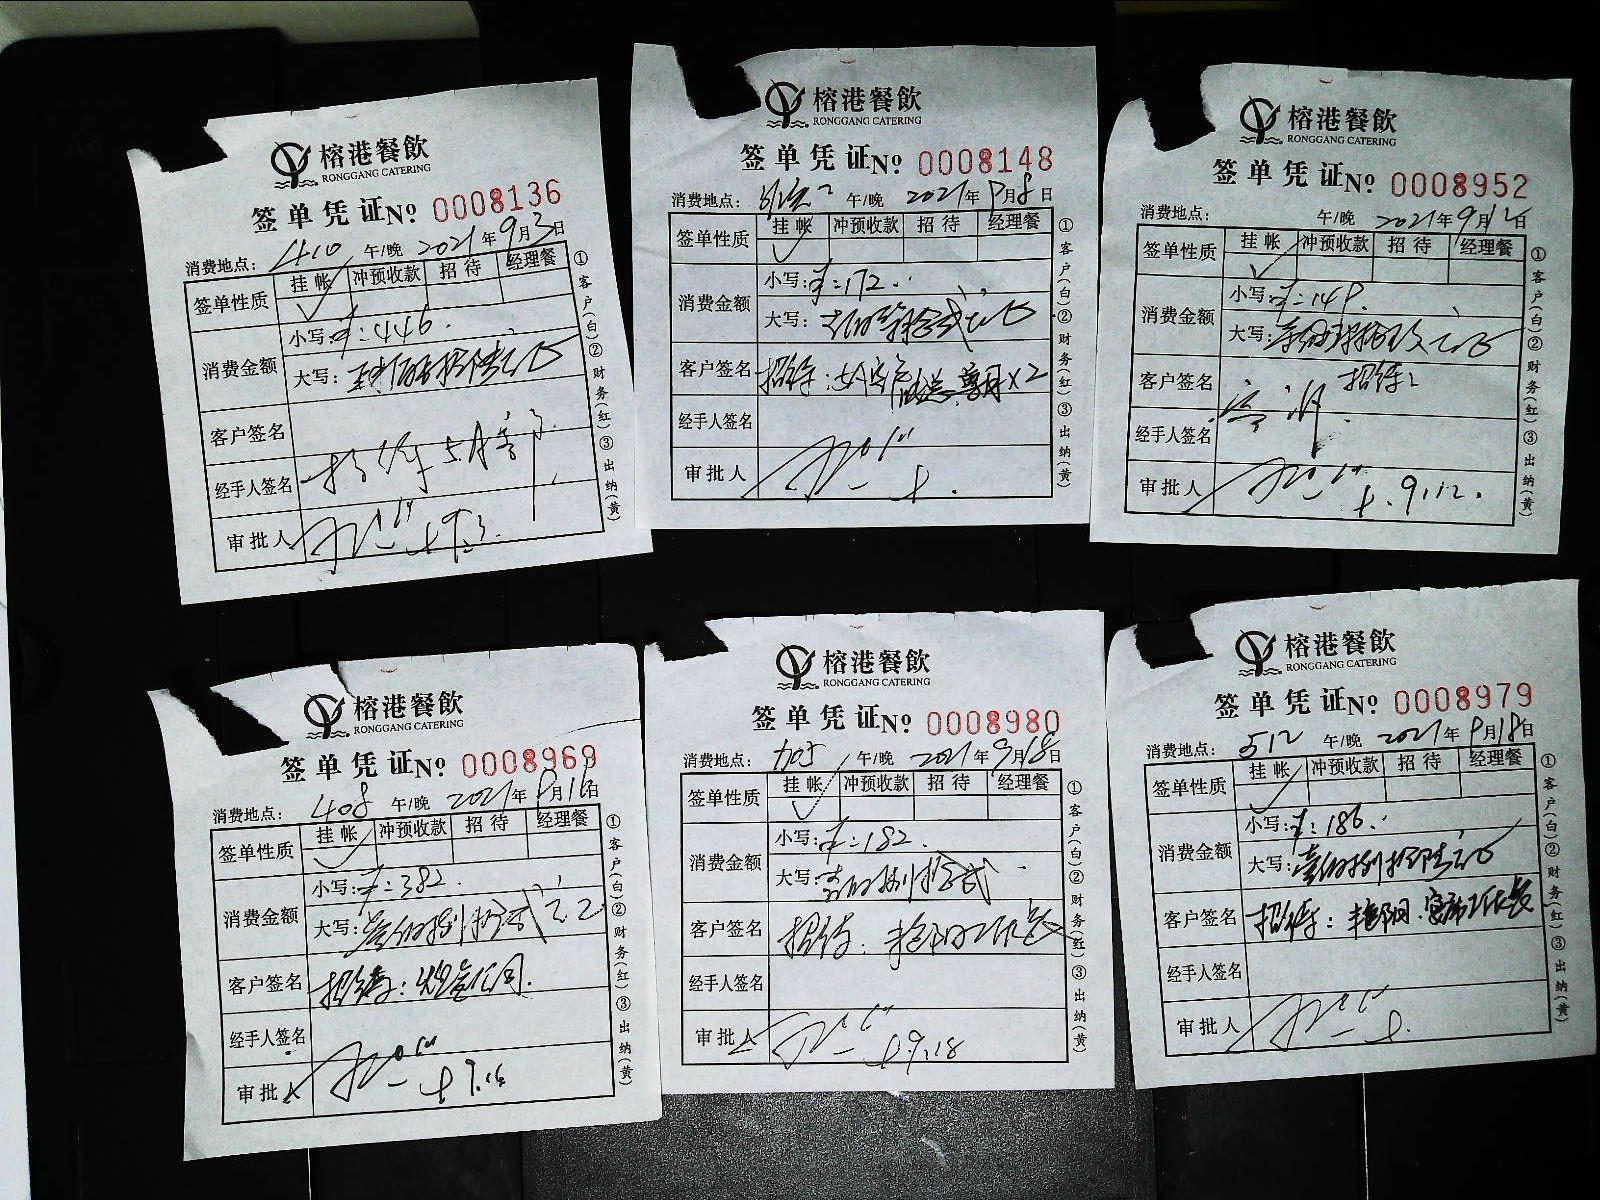 榕港餐飲
RONGGANG CATERING
签单凭证№ 0008136
消费地点：410 午/晚 2021年9月3日
签单性质 挂帐 冲预收款 招待 经理餐
✓
消费金额 小写：¥:446.
大写：肆佰肆拾陆元正
客户签名
经手人签名 招待
审批人 9.3.
①客户(白)②财务(红)③出纳(黄)
榕港餐飲
RONGGANG CATERING
签单凭证№ 0008148
消费地点： 午/晚 2021年9月8日
签单性质 挂帐 冲预收款 招待 经理餐
✓
消费金额 小写：¥:172.
大写：壹佰柒拾贰元正
客户签名 招待： ×2
经手人签名
审批人
①客户(白)②财务(红)③出纳(黄)
榕港餐飲
RONGGANG CATERING
签单凭证№ 0008952
消费地点： 午/晚 2021年9月12日
签单性质 挂帐 冲预收款 招待 经理餐
✓
消费金额 小写：¥:148.
大写：
客户签名 招待：
经手人签名
审批人 9.12.
①客户(白)②财务(红)③出纳(黄)
榕港餐飲
RONGGANG CATERING
签单凭证№ 0008969
消费地点：408 午/晚 2021年9月16日
签单性质 挂帐 冲预收款 招待 经理餐
✓
消费金额 小写：¥:382.
大写：叁佰捌拾贰元正
客户签名 招待：
经手人签名
审批人 9.16
①客户(白)②财务(红)③出纳(黄)
榕港餐飲
RONGGANG CATERING
签单凭证№ 0008980
消费地点： 午/晚 2021年9月18日
签单性质 挂帐 冲预收款 招待 经理餐
✓
消费金额 小写：¥:182.
大写：壹佰捌拾贰
客户签名 招待：艳阳
经手人签名
审批人 9.18
①客户(白)②财务(红)③出纳(黄)
榕港餐飲
RONGGANG CATERING
签单凭证№ 0008979
消费地点：512 午/晚 2021年9月18日
签单性质 挂帐 冲预收款 招待 经理餐
✓
消费金额 小写：¥:186.
大写：壹佰捌拾陆元正
客户签名 招待：艳阳
经手人签名
审批人
①客户(白)②财务(红)③出纳(黄)